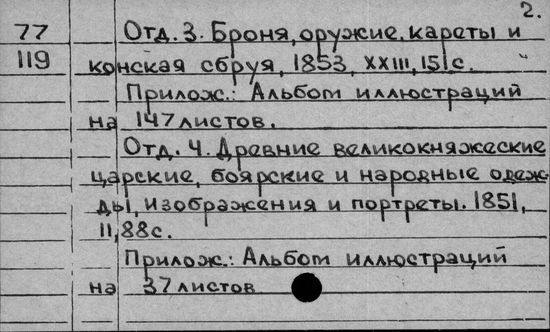 2.
77 Отд. 3. Броня, оружие, кареты и
119 конская сбруя, 1853, XXIII, 151с.
Прилож.: Альбом иллюстраций
на 147 листов.
Отд. 4. Древние великокняжеские
царские, боярские и народные одеж-
ды, изображения и портреты. 1851,
II, 88с.
Прилож.: Альбом иллюстраций
на 37 листов